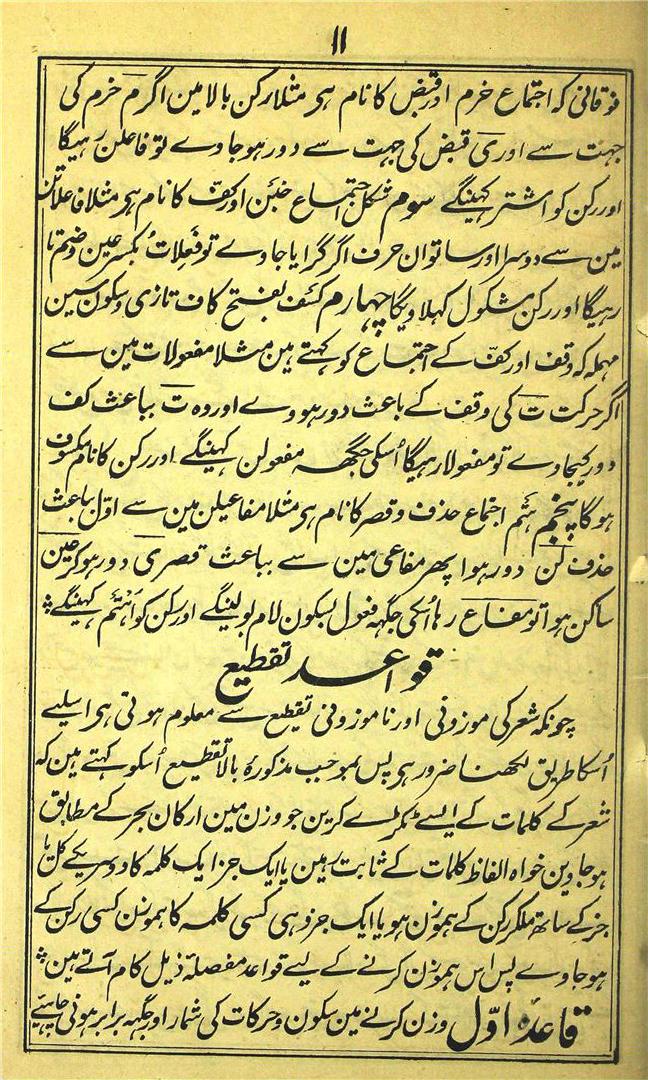 ۱۱
فوقانی کہ اجتماع خرم اور قبض کا نام ہی مثلا رکن بالا مین اگر م خرم کی
جہت سے اور ی قبض کی جہت سے دور ہو جاوے تو فاعلن رہیگا
اور رکن کو اشتر کہینگے سوم شکل اجتماع خبن اور کفّ کا نام ہی مثلا فاعلاتن
مین سے دوسرا اور ساتوان حرف اگر گرایا جاوے تو فَعِلاتُ بکسر عین و ضم تا
رہیگا اور رکن مشکول کہلاویگا چہارم کسف بفتح کاف تازی و سکون سین
مہملہ کہ وقف اور کفّ کے اجتماع کو کہتے ہین مثلا مفعولات مین سے
اگر حرکت ت کی وقف کے باعث دور ہووے اور وہ ت بباعث کف
دور کیجاوے تو مفعولا رہیگا اُسکی جگھہ مفعولن کہینگے اور رکن کا نام مکسوف
ہوگا پنجم ہتم اجتماع حذف و قصر کا نام ہی مثلا مفاعیلن مین سے اوّل بباعث
حذف لن دور ہوا پھر مفاعی مین سے بباعث قصر ی دور ہوکر عین
ساکن ہوا تو مفاع رہا اُسکی جگہہ فعول بسکون لام بولینگے اور رکن کو اَہتم کہینگے
قواعد تقطیع
چونکہ شعر کی موزونی اور ناموزونی تقطیع سے معلوم ہوتی ہی اسلیے
اُسکا طریق لکھنا ضرور ہی پس بموجب مذکورۂ بالا تقطیع اُسکو کہتے ہین کہ
شعر کے کلمات کے ایسے ٹکڑے کرین جو وزن مین ارکان بحر کے مطابق
ہو جاوین خواہ الفاظ کلمات کے ثابت رہین یا ایک جز ایک کلمہ کا دوسریکے کل یا
جز کے ساتھ ملکر رکن کے ہموزن ہو یا ایک جز ہی کسی کلمہ کا ہموزن کسی رکن کے
ہو جاوے پس اس ہموزن کرنے کے لیے قواعد مفصلۂ ذیل کام آتے ہین
قاعدہ اوّل وزن کرنے مین سکون و حرکات کی شمار اور جگہہ برابر ہونی چاہیئے